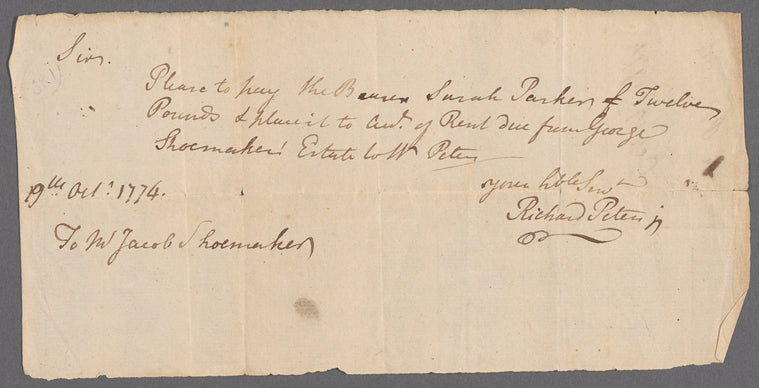 Sir.
Please to pay the Bearer Sarah Parker Twelve
Pounds & place it to Acct. of Rent due from George
Shoemaker's Estate to Wm Peters
your hble Servt
19th Octr. 1774.
Richard Peters jr
To Mr Jacob Shoemaker